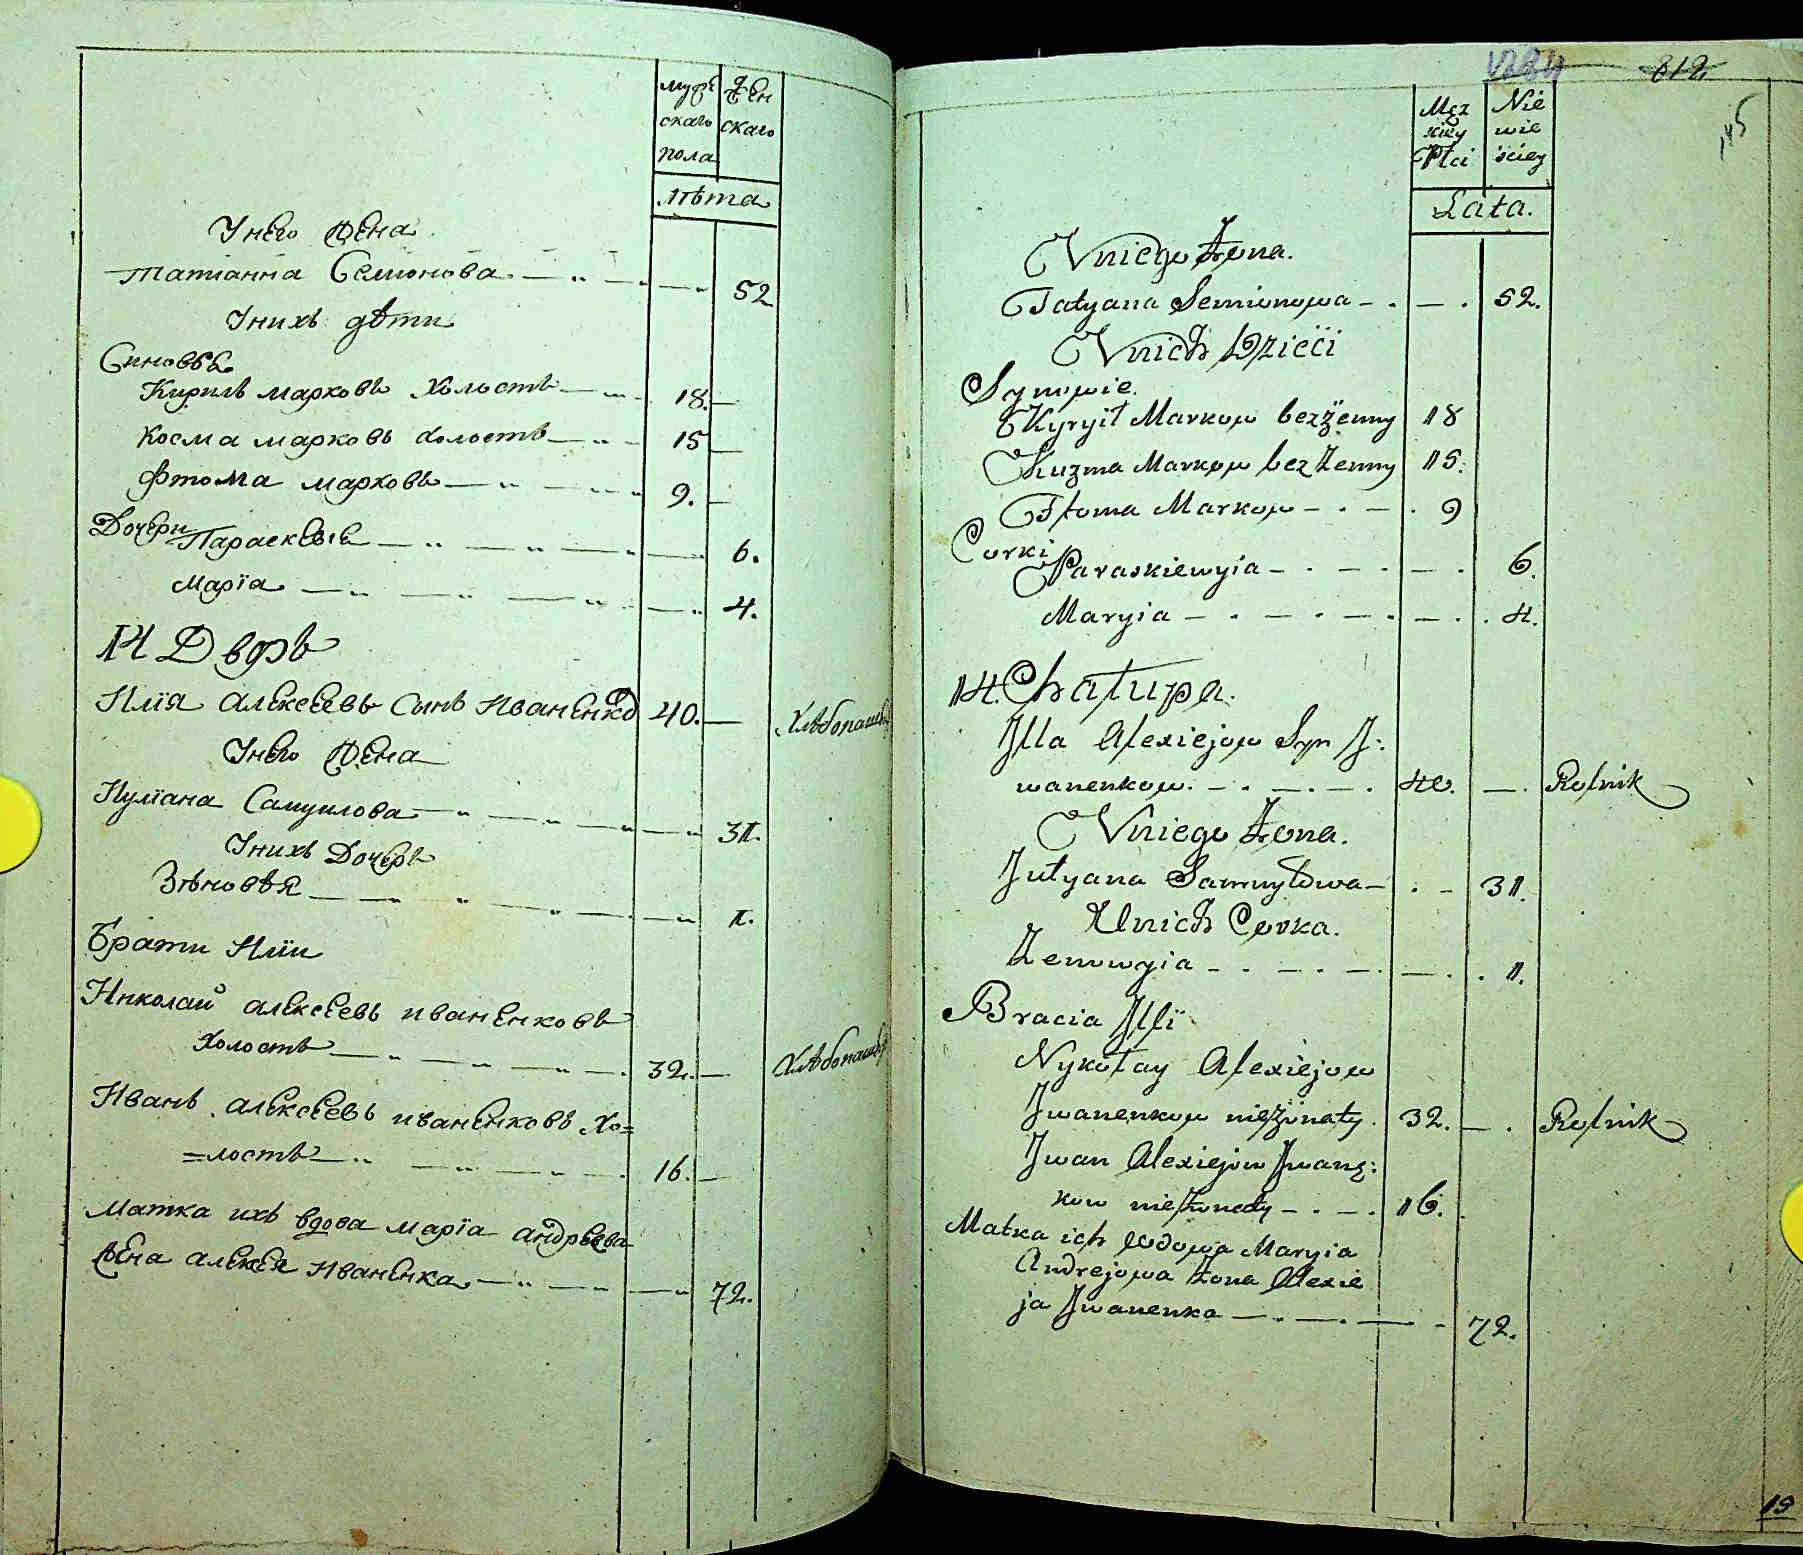 муже
скаго
пола
жен
скаго
лѣта
У него жена
Татіанна Семіонова 52
У нихъ дѣти
Синовѣ
Кирилъ марковъ холостъ 18.
Косма марковъ холостъ 15
Фтома марковъ 9.
Дочери Параскевіе 6.
Марїа 4.
14 Дворъ
Илїя алексеевъ сынъ Иваненко 40. Хлѣбопашец
У него жена
Иулїана Самуилова 31.
У нихъ Дочерь
Зѣновѣя 1.
Брати Илїи
Николай алексеевъ иваненковъ
холостъ 32. Хлѣбопашец
Иванъ алексеевъ иваненковъ хо=
=лостъ 16.
Матка ихъ вдова марїа андреева
жена алексея Иваненка 72.
812
145
Męz
kiey
Płci
Nie
wie
sciey
Lata.
Vniego Żona.
Tatyana Semionowa 52.
Vnich Dzieci
Synowie.
Kyryił Markow bezżenny 18
Kuzma Markow bezżenny 15.
Ftoma Markow 9
Corki
Paraskiewyia 6.
Maryia 4.
14. Chałupa.
Jlla Alexiejow Syn J:
wanenkow. 40. Rolnik
Vniego Żona.
Julyana Samuyłowa 31.
Unich Corka.
Zenowyia 1.
Bracia Jllï
Nykołay Alexiejow
Jwanenkow nieżonaty. 32. Rolnik
Jwan Alexiejow Jwanę:
kow nieżonaty 16.
Matka ich wdowa Maryia
Andrejowa żona Alexie
ja Jwanenka 72.
15